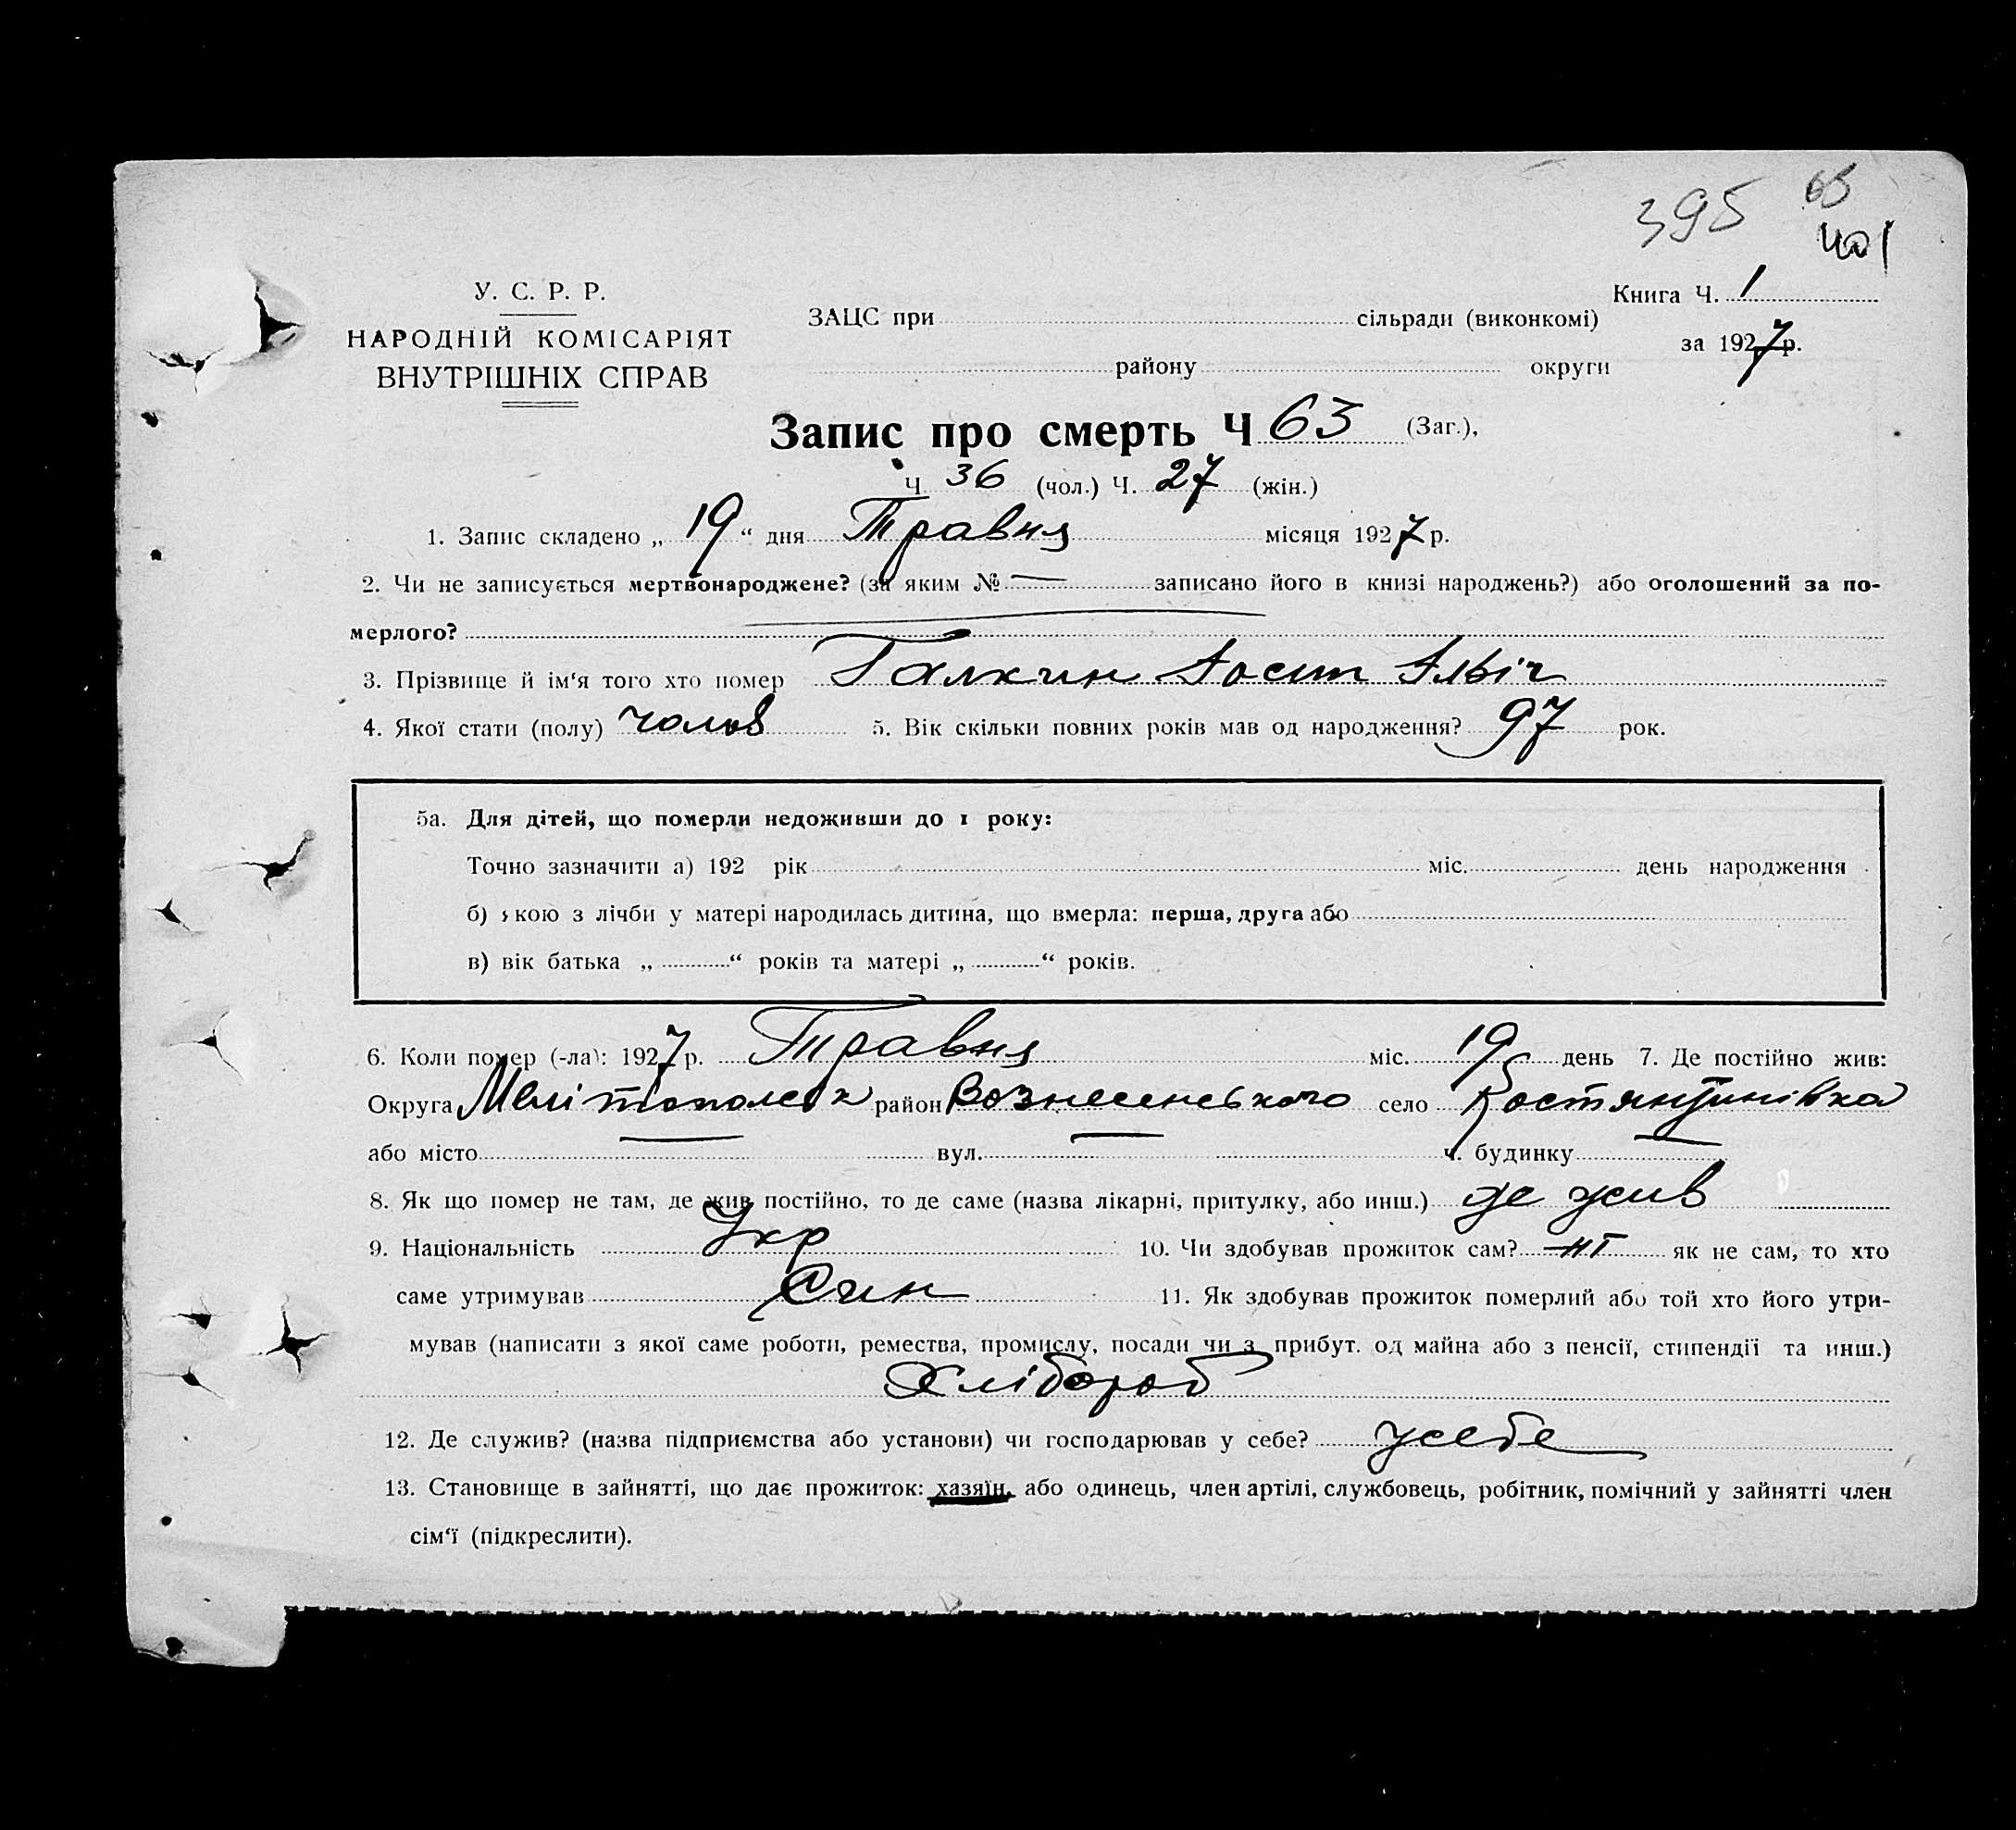 395 63
401
У. С. Р. Р.
НАРОДНІЙ КОМІСАРІЯТ
ВНУТРІШНІХ СПРАВ
Книга Ч. 1
ЗАЦС при сільради (виконкомі)
за 1927 р.
району округи
Запис про смерть Ч 63 (Заг.),
Ч 36 (чол.) Ч. 27 (жін.)
1. Запис складено „ 19 “ дня Травня місяця 1927 р.
2. Чи не записується мертвонароджене? (за яким № — записано його в книзі народжень?) або оголошений за по-
мерлого?
3. Прізвище й ім‘я того хто помер Галкин Йосип
4. Якої стати (полу) чолов 5. Вік скільки повних років мав од народження? 97 рок.
5а. Для дітей, що померли недоживши до 1 року:
Точно зазначити а) 192 рік міс. день народження
б) якою з лічби у матері народилась дитина, що вмерла: перша, друга або
в) вік батька „ “ років та матері „ “ років.
6. Коли помер (-ла): 1927 р. Травня міс. 19 день 7. Де постійно жив:
Округа Мелітопольск район Вознесенського село Костянтинівка
або місто — вул. — ч. будинку —
8. Як що помер не там, де жив постійно, то де саме (назва лікарні, притулку, або инш.) де жив
9. Національність Укр 10. Чи здобував прожиток сам? ні як не сам, то хто
саме утримував Син 11. Як здобував прожиток померлий або той хто його утри-
мував (написати з якої саме роботи, ремества, промислу, посади чи з прибут. од майна або з пенсії, стипендії та инш.)
Хлібороб
12. Де служив? (назва підприємства або установи) чи господарював у себе? усебе
13. Становище в зайнятті, що дає прожиток: хазяїн, або одинець, член артілі, службовець, робітник, помічний у зайнятті член
сім‘ї (підкреслити).